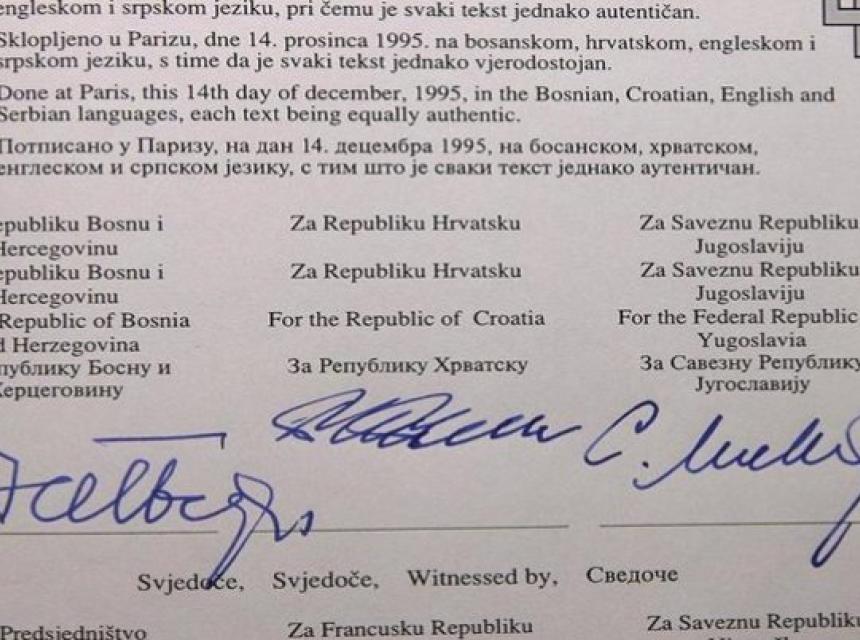 engleskom i srpskom jeziku, pri čemu je svaki tekst jednako autentičan.
Sklopljeno u Parizu, dne 14. prosinca 1995. na bosanskom, hrvatskom, engleskom i
srpskom jeziku, s time da je svaki tekst jednako vjerodostojan.
Done at Paris, this 14th day of december, 1995, in the Bosnian, Croatian, English and
Serbian languages, each text being equally authentic.
Потписано у Паризу, на дан 14. децембра 1995, на босанском, хрватском,
енглеском и српском језику, с тим што је сваки текст једнако аутентичан.
epubliku Bosnu i Za Republiku Hrvatsku Za Saveznu Republiku
Hercegovinu Jugoslaviju
epubliku Bosnu i Za Republiku Hrvatsku Za Saveznu Republiku
Hercegovinu Jugoslaviju
Republic of Bosnia For the Republic of Croatia For the Federal Republic
d Herzegovina Yugoslavia
публику Босну и За Републику Хрватску За Савезну Републику
Херцеговину Југославију
Svjedoče, Svjedoče, Witnessed by, Сведоче
Predsjedništvo Za Francusku Republiku Za Saveznu Republiku